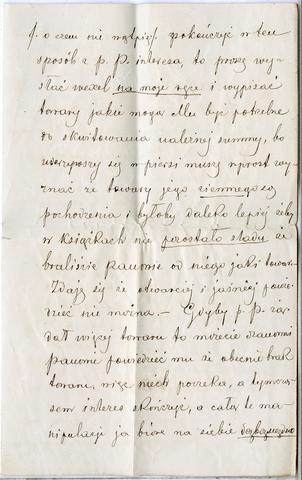 /. o czem nie wątpię/. zpokończyć w ten
sposób z p. P. interesa, to proszę wy-
stać wexel na moje ręce i wypisać
towary jakie mogą Mu być potrzebne
do skwitowania należnej summy, bo
uderzywszy się w piersi muszę wprost wy-
znać że towary jego ziemnego są
pochodzenia i byłoby daleko lepiej żeby
w książkach nie pozostało śladu że
braliście Panowie od niego jaki towar.-
Zdaje się że otwarciej i jaśniej powie-
dzieć nie można. - Gdyby p. P. żą-
dał więcej towaru to możecie szanowni
panowie powiedzieć mu że obecnie brak
towaru, więc niech poczeka, a tymcza-
sem interes skończyć, a całą tę ma-
nipulację ja biorę na siebie